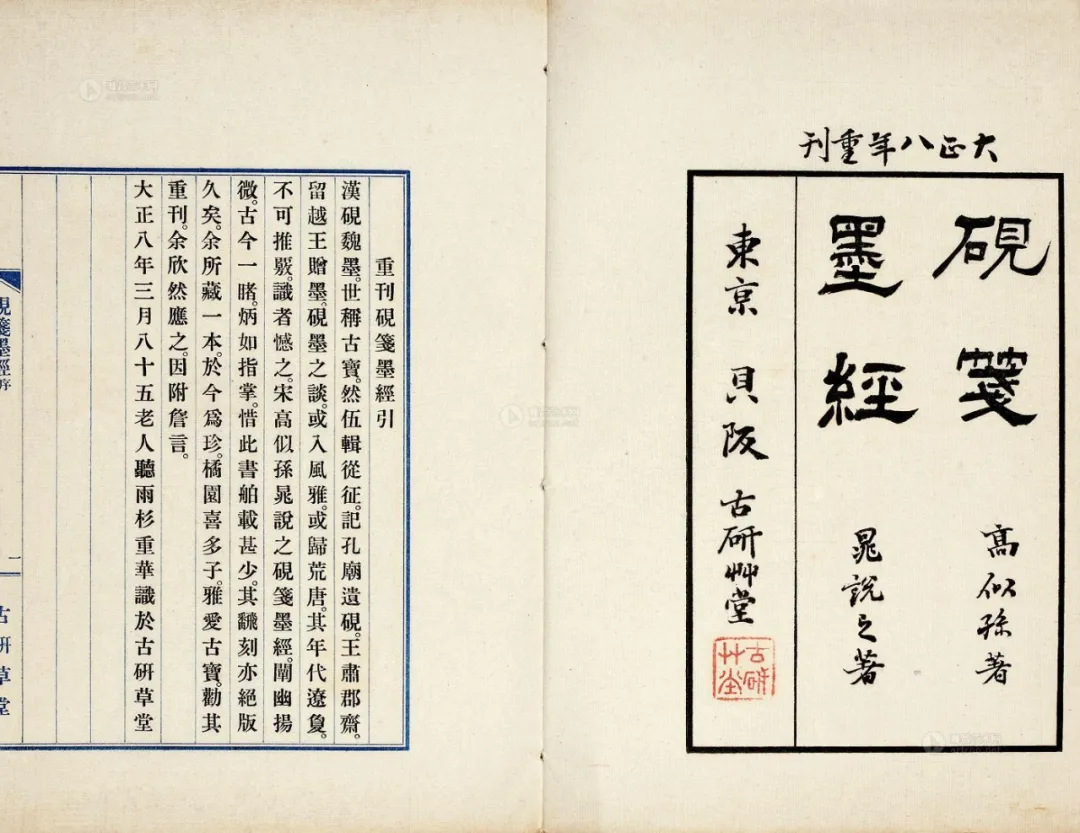 大正八年重刊
硯箋 高似孫著
墨經 晁說之著
東京 貝阪 古研艸堂
古研艸堂
重刊硯箋墨經引
漢硯魏墨。世稱古寶。然伍輯從征。記孔廟遺硯。王肅郡齋。
留越王贈墨。硯墨之談。或入風雅。或歸荒唐。其年代遼夐。
不可推覈。識者憾之。宋高似孫晁說之硯箋墨經。闡幽揚
微。古今一睹。炳如指掌。惜此書舶載甚少。其飜刻亦絕版
久矣。余所藏一本。於今爲珍。橘園喜多子。雅愛古寶。勸其
重刊。余欣然應之。因附詹言。
大正八年三月八十五老人聽雨杉重華識於古研草堂
硯箋墨經序 一 古研草堂